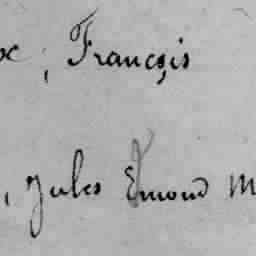 x, François
, Jules Emond M